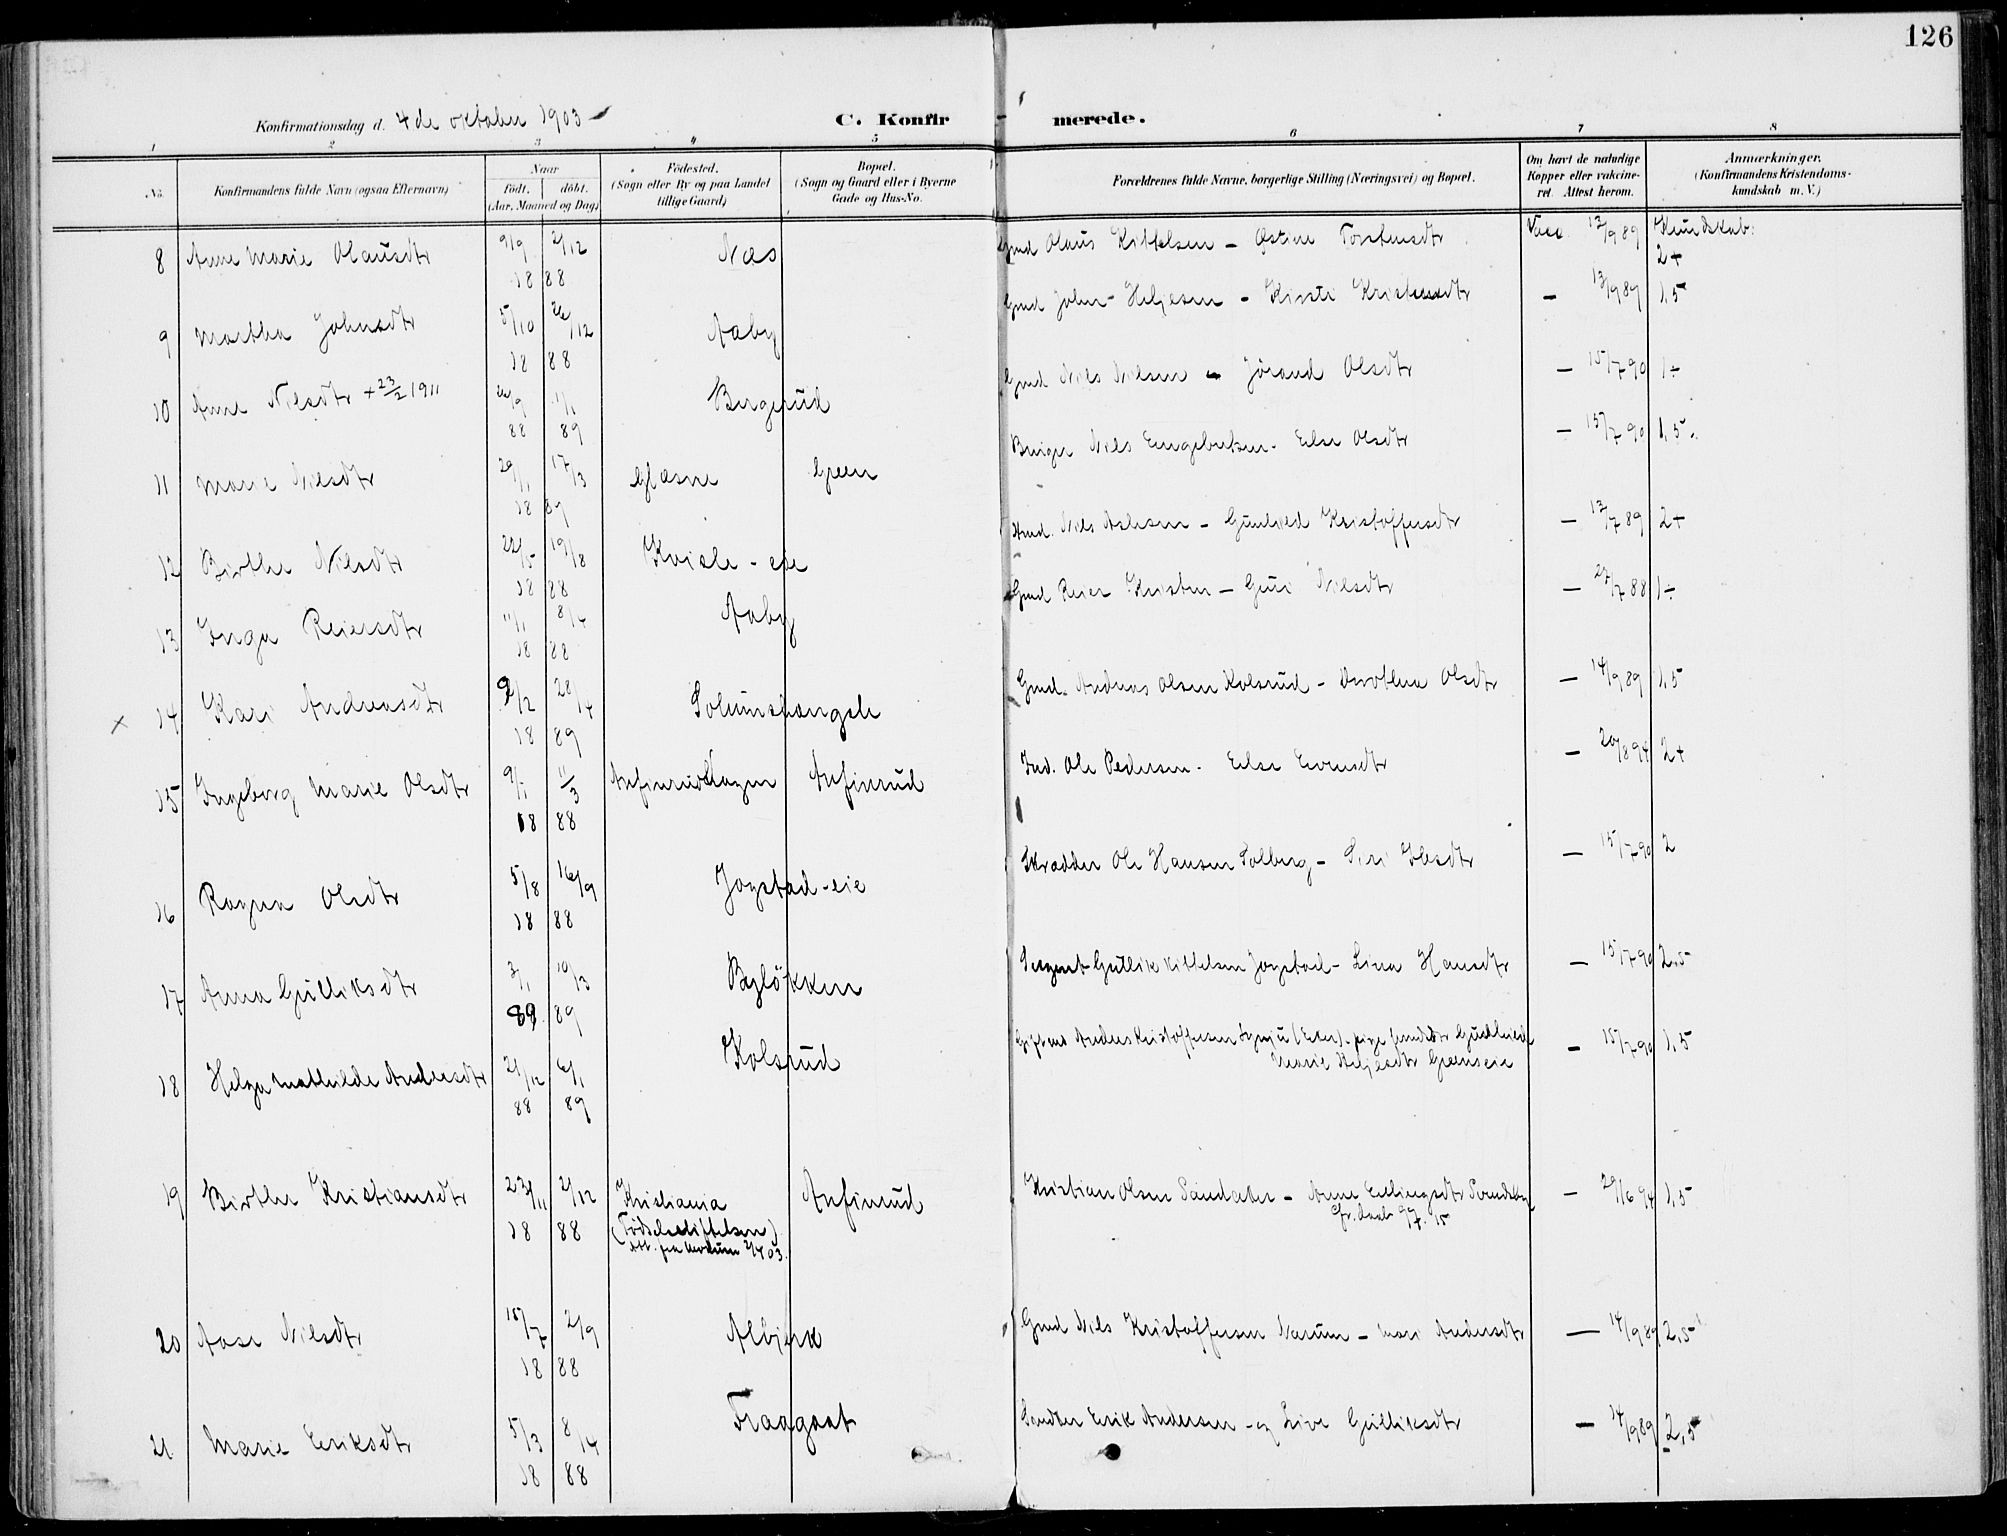 126
Konfirmationsdag d. 4de oktober 1903
C. Konfirmerede.
1 2 3 4 5 6 7 8
No. Konfirmandens fulde Navn (ogsaa Efternavn) Naar födt. döbt. (Aar, Maaned og Dag) Födested. (Sogn eller By og paa Landet tillige Gaard) Bopæl. (Sogn og Gaard eller i Byerne Gade og Hus-No. Forældrenes fulde Navne, borgerlige Stilling (Næringsvei) og Bopæl. Om havt de naturlige Kopper eller vakcineret. Attest herom. Anmærkninger. (Konfirmandens Kristendomskundskab m. V.)
8 Anne Marie Olausdtr 9/9 2/12 1888 Næs Gmd Olaus Kittelsen - Østine Torstensdtr Vacc. 13/9 89 Kundskab: 2+
9 Martha Johnsdtr 5/10 26/12 1888 Aaby Gmd John Heljesen - Kirsti Kristensdtr - 13/9 89 1,5
10 Anne Nilsdtr + 23/2 1911 26/9 88 1/1 89 Bergerud Gmd Nils Nilsen - Jörand Olsdtr - 15/7 90 1÷
11 Marie Nilsdtr 29/1 17/3 1889 Glæsne Green Bruger Nils Engebretsen - Else Olsdtr - 15/7 90 1,5
12 Birthe Nilsdtr 22/5 19/8 1888 Kvisle-eie Hmd. Nils Aslesen - Gunhild Kristoffersdtr - 13/7 89 2+
13 Inga Reiersdtr 11/1 8/4 1888 Aaby Gmd Reier Kristen - Guri Nilsdtr - 27/7 88 1÷
× 14 Kari Andreasdtr 9/2 28/4 1889 Solumshængsle Gmd. Andreas Olsen Kolsrud - Dorothea Olsdtr - 14/9 89 1,5
15 Ingeborg Marie Olsdtr 9/1 11/3 1888 Anfinrudhagen Anfinrud Ind. Ole Pedersen - Else Evensdtr - 20/8 94 2+
16 Ragna Olsdtr 5/8 16/9 1888 Jogstad-eie Skrædder Ole Hansen Solberg - Siri Ibsdtr - 15/7 90 2
17 Anna Gulliksdtr 3/1 89 10/3 89 Bylökken Sergent Gullik Kittelsen Jogstad - Lina Hansdtr - 15/7 90 2,5
18 Helga Mathilde Andersdtr 21/12 88 6/1 89 Kolsrud Gift md Anders Kristoffersen (Eker) - pige Gudbrand
Marie Heljesdtr Greenseie - 15/7 90 1,5
19 Birthe Kristiansdtr 23/11 2/12 1888 Kristiania Anfinrud Kristian Olsen Sandaker - Anne Erlingsdtr - 29/6 94 1,5
(Födselsstiftelsen)
Att. fra Modum 2/4 03.
20 Aase Nilsdtr 15/7 2/9 1888 Albjerk Gmd Nils Kristoffersen Narum - Mari Andersdtr - 14/9 89 2,5
21 Marie Eriksdtr 5/3 8/4 1888 Fraagaat Smd Erik Andersen og Live Gulliksdtr - 14/9 89 2,5